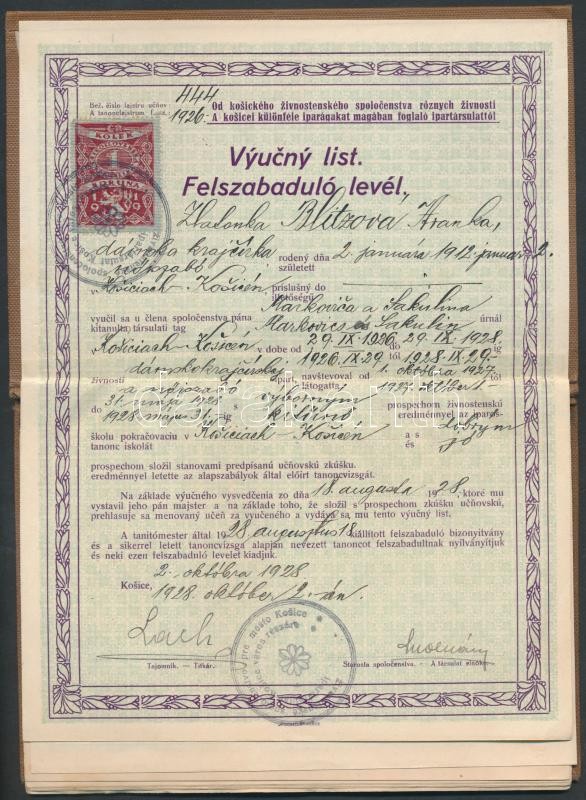 Bež. číslo lajstru učňov 444
A tanonclajstrom f. sz. 1926
Od košického živnostenského spoločenstva rôznych živností
A košicei különféle iparágakat magában foglaló ipartársulattól
KOLEK
KORUNA
Výučný list.
Felszabaduló levél.
Zlatonka Blitzová Aranka,
dámska krajčírka rodený dňa 2. januára 1912. január 2.
nőiszabó született
v Košiciach Košicén príslušný do
illetőségű
Markoviča a Sakulina
vyučil sa u člena spoločenstva pána Markovics és Sakulin úrnál
kitanulta társulati tag
Košiciach Košicén v dobe od 29. IX. 1926. 29. IX. 1928.
1926. IX. 29 tól 1928. IX. 29-ig
dámskokrajčírskej
živnosti a nőiszabó ipart, navštevoval od 1. októbra 1927.
látogatta 1927. október 1
do 31. mája 1928 výborným prospechom živnostenskú
1928. május 31-ig kitűnő eredménnyel az iparos-
školu pokračovaciu v Košiciach Košicén a s dobrým
tanonc iskolát és jó
prospechom složil stanovami predpísanú učňovskú zkúšku.
eredménnyel letette az alapszabályok által előirt tanoncvizsgát.
Na základe výučného vysvedčenia zo dňa 18. augusta 1928. ktoré mu
vystavil jeho pán majster a na základe toho, že složil s prospechom zkúšku učňovskú,
prehlasuje sa menovaný učeň za vyučeného a vydáva sa mu tento výučný list.
A tanitómester által 1928 augusztus 18. kiállított felszabaduló bizonyitvány
és a sikerrel letett tanoncvizsga alapján nevezett tanoncot felszabadultnak nyilvánítjuk
és neki ezen felszabaduló levelet kiadjuk.
2. októbra 1928
Košice,
1928. október 2.-án.
Lach
Tajomník. – Titkár.
Starosta spoločenstva. – A társulat elnöke.